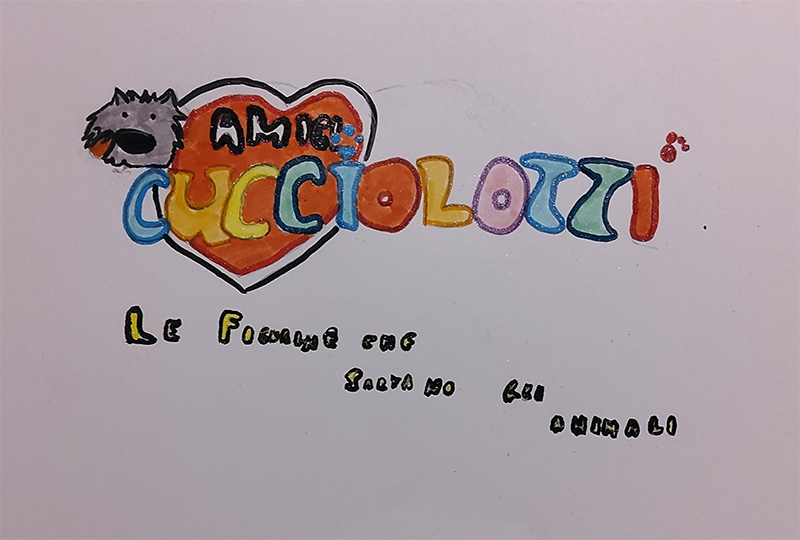 AMICI
CUCCIOLOTTI
LE FIGURINE CHE
SALVANO GLI
ANIMALI